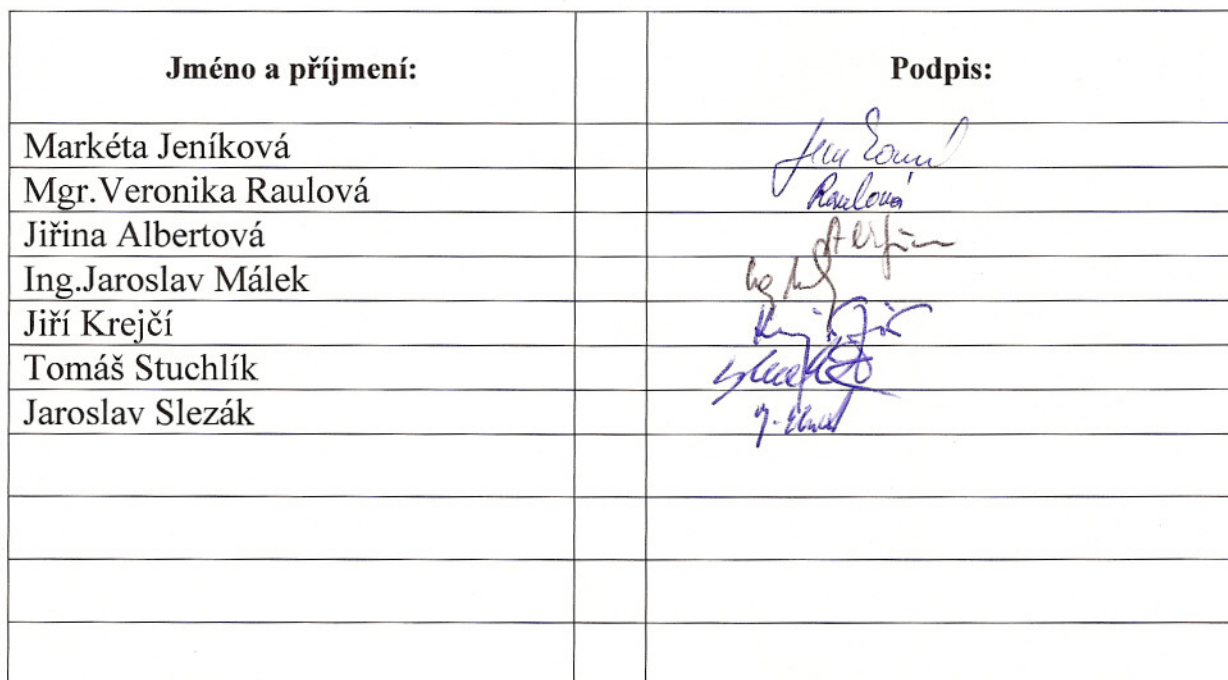 Jméno a příjmení: Podpis:
Markéta Jeníková
Mgr.Veronika Raulová Raulová
Jiřina Albertová
Ing.Jaroslav Málek
Jiří Krejčí
Tomáš Stuchlík
Jaroslav Slezák